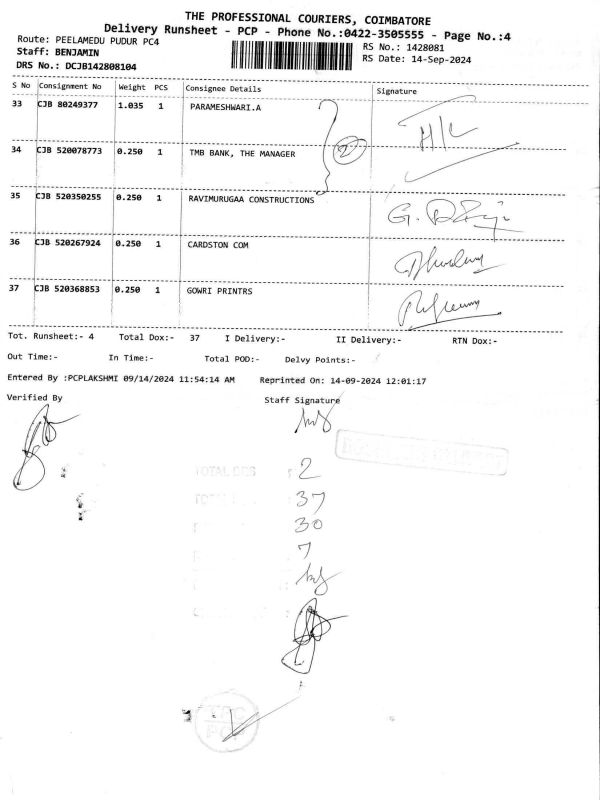 THE PROFESSIONAL COURIERS, COIMBATORE
Delivery Runsheet - PCP - Phone No.:0422-3505555 - Page No.:4
Route: PEELAMEDU PUDUR PC4
RS No.: 1428081
Staff: BENJAMIN
RS Date: 14-Sep-2024
DRS No.: DCJB142808104
S No Consignment No Weight PCS Consignee Details Signature
33 CJB 80249377 1.035 1 PARAMESHWARI.A
34 CJB 520078773 0.250 1 TMB BANK, THE MANAGER
2
35 CJB 520350255 0.250 1 RAVIMURUGAA CONSTRUCTIONS
36 CJB 520267924 0.250 1 CARDSTON COM
37 CJB 520368853 0.250 1 GOWRI PRINTRS
Tot. Runsheet:- 4 Total Dox:- 37 I Delivery:- II Delivery:- RTN Dox:-
Out Time:- In Time:- Total POD:- Delvy Points:-
Entered By :PCPLAKSHMI 09/14/2024 11:54:14 AM Reprinted On: 14-09-2024 12:01:17
Verified By Staff Signature
TOTAL DRS : 2
37
30
7